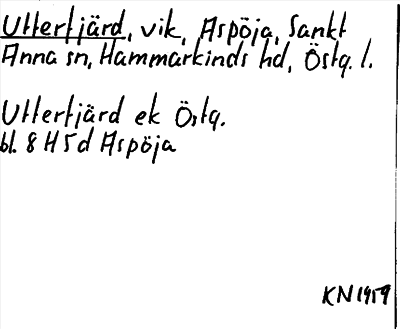 Utterfjärd, vik, Aspöja, Sankt
Anna sn, Hammarkinds hd, Östg. l.
Utterfjärd ek Östg.
bl. 8 H 5 d Aspöja
KN 1959